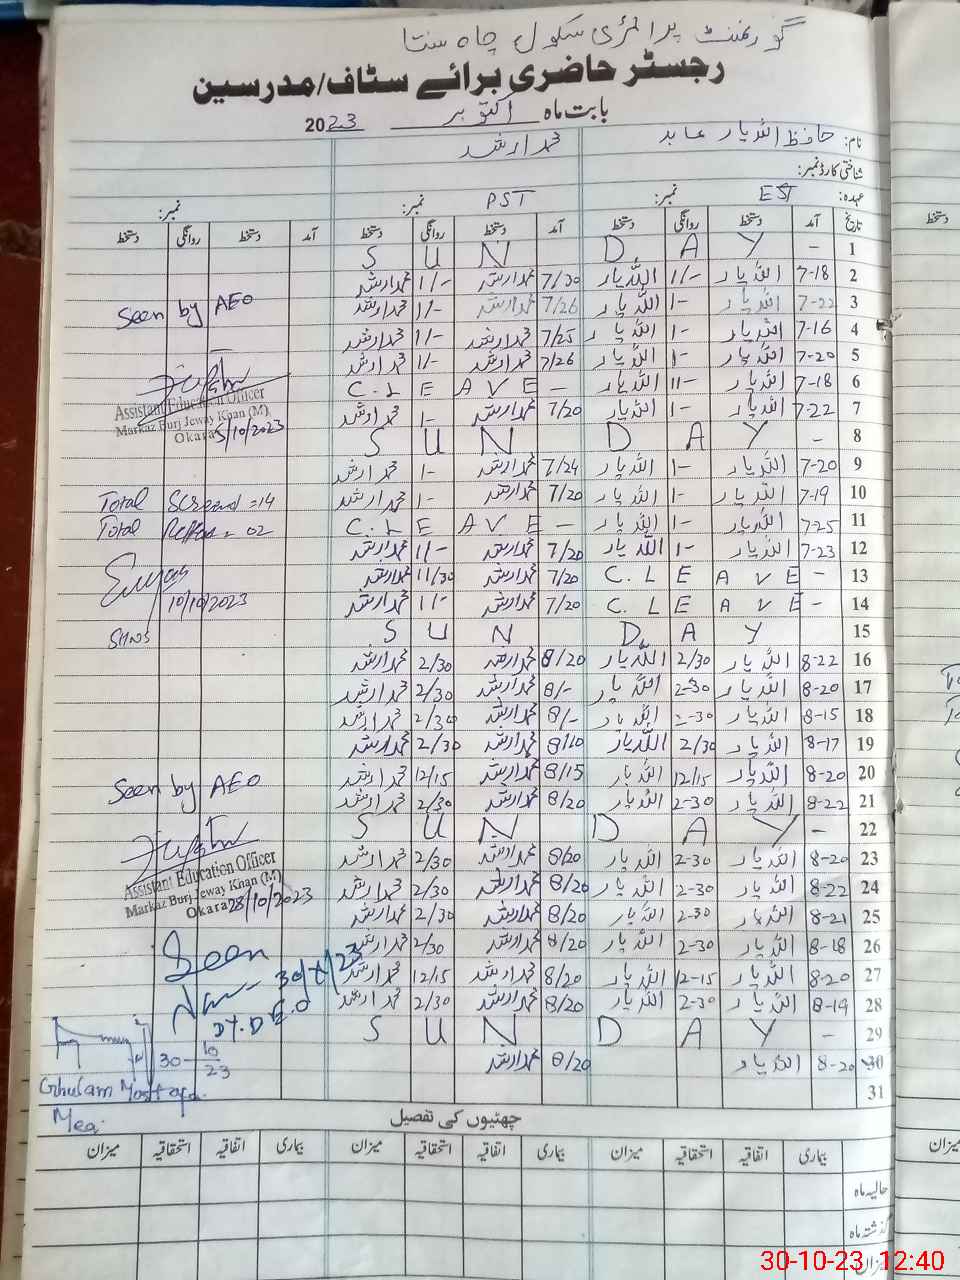 گورنمنٹ پرائمری سکول چاہ سنتا
رجسٹر حاضری برائے سٹاف/مدرسین
بابت ماہ اکتوبر 2023
نام: حافظ اللہ یار عابد محمد ارشد
شناختی کارڈ نمبر:
عہدہ: EST نمبر: PST نمبر: نمبر:
تاریخ آمد دستخط روانگی دستخط آمد دستخط روانگی دستخط آمد دستخط روانگی دستخط
1 - S U N D. A Y
2 7-18 اللہ یار 1/- اللہ یار 7/30 محمد ارشد 1/- محمد ارشد
3 7-22 اللہ یار 1- اللہ یار 7/26 محمد ارشد 1/- محمد ارشد
Seen by AEO
4 7-16 اللہ یار 1- اللہ یار 7/25 محمد ارشد 1/- محمد ارشد
5 7-20 اللہ یار 1- اللہ یار 7/26 محمد ارشد 1/- محمد ارشد
6 7-18 اللہ یار 11- اللہ یار - C. L E A V E
Assistant Education Officer
7 7-22 اللہ یار 1- اللہ یار 7/20 محمد ارشد 1- محمد ارشد
Markaz Burj Jeway Khan (M)
Okara 5/10/2023
8 - S U N D A Y
9 7-20 اللہ یار 1- اللہ یار 7/24 محمد ارشد 1- محمد ارشد
10 7-19 اللہ یار 1- اللہ یار 7/20 محمد ارشد 1- محمد ارشد
Total = 14
11 7-25 اللہ یار 1- اللہ یار - C. L E A V E
Total = 02
12 7-23 اللہ یار 1- اللہ یار 7/20 محمد ارشد 1/- محمد ارشد
13 - C. L E A V E 7/20 محمد ارشد 11/30 محمد ارشد
14 - C. L E A V E 7/20 محمد ارشد 1/- محمد ارشد
10/10/2023
15 S U N D. A Y
16 8-22 اللہ یار 2/30 اللہ یار 8/20 محمد ارشد 2/30 محمد ارشد
17 8-20 اللہ یار 2-30 اللہ یار 8/- محمد ارشد 2/30 محمد ارشد
18 8-15 اللہ یار 2-30 اللہ یار 8/- محمد ارشد 2/30 محمد ارشد
19 8-17 اللہ یار 2/30 اللہ یار 8/10 محمد ارشد 2/30 محمد ارشد
20 8-20 اللہ یار 12/15 اللہ یار 8/15 محمد ارشد 12/15 محمد ارشد
Seen by AEO
21 8-22 اللہ یار 2-30 اللہ یار 8/20 محمد ارشد 2/30 محمد ارشد
22 - S U N D A Y
23 8-20 اللہ یار 2-30 اللہ یار 8/20 محمد ارشد 2/30 محمد ارشد
Assistant Education Officer
24 8-22 اللہ یار 2-30 اللہ یار 8/20 محمد ارشد 2/30 محمد ارشد
Markaz Burj Jeway Khan (M)
Okara 23/10/2023
25 8-21 اللہ یار 2-30 اللہ یار 8/20 محمد ارشد 2/30 محمد ارشد
26 8-18 اللہ یار 2-30 اللہ یار 8/20 محمد ارشد 2/30 محمد ارشد
Seen
27 8-20 اللہ یار 12-15 اللہ یار 8/20 محمد ارشد 12/15 محمد ارشد
28 8-19 اللہ یار 2-30 اللہ یار 8/20 محمد ارشد 2/30 محمد ارشد
DY. D E.O
29 - S U N D A Y
30 8-20 اللہ یار 8/20 محمد ارشد
30-10-23
31
Ghulam
Mea
چھٹیوں کی تفصیل
بیماری اتفاقیہ استحقاقیہ میزان بیماری اتفاقیہ استحقاقیہ میزان بیماری اتفاقیہ استحقاقیہ میزان
حالیہ ماہ
گذشتہ ماہ
میزان
30-10-23 12:40